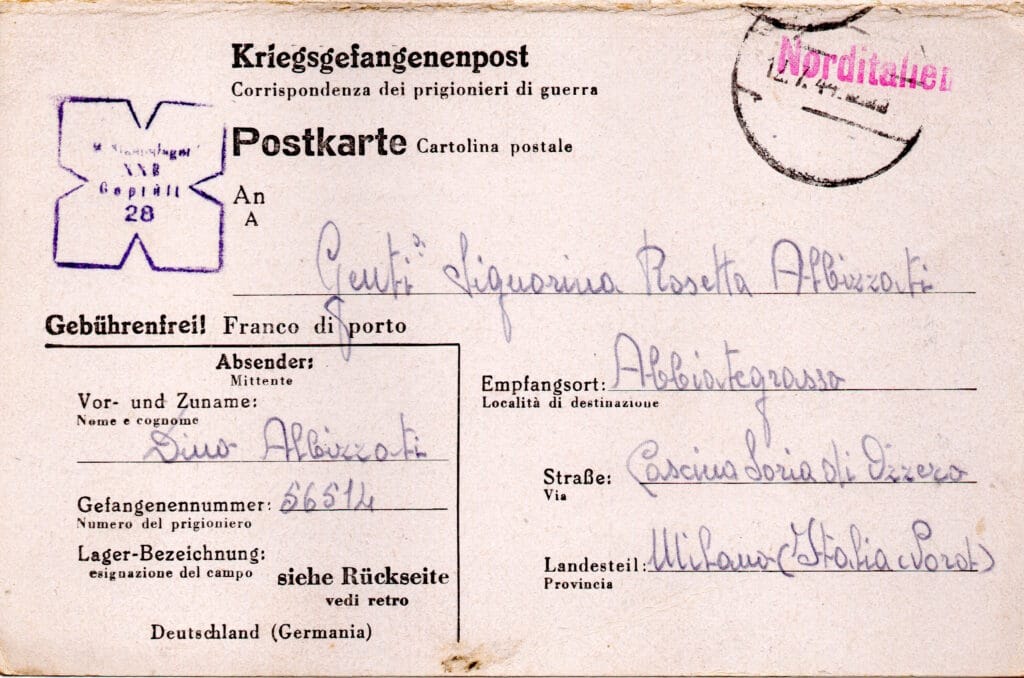 Kriegsgefangenenpost
Corrispondenza dei prigionieri di guerra
Norditalien
12.7.44
Postkarte Cartolina postale
XXB
Geprüft
28
An
A
Gentil Signorina Rosetta Albizzati
Gebührenfrei! Franco di porto
Absender:
Mittente
Vor- und Zuname:
Nome e cognome
Dino Albizzati
Gefangenennummer: 56514
Numero del prigioniero
Lager-Bezeichnung:
esignazione del campo
siehe Rückseite
vedi retro
Deutschland (Germania)
Empfangsort: Abbiategrasso
Località di destinazione
Straße: Cascina Soria di Ozzero
Via
Landesteil: Milano (Italia Nord)
Provincia